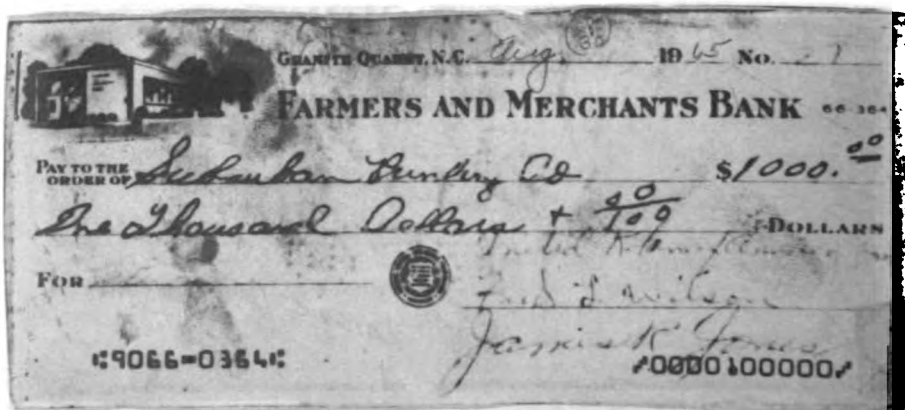 GRANITE QUARRY, N.C. Aug. 1965 No.
FARMERS AND MERCHANTS BANK 66-364
PAY TO THE ORDER OF Suburban Co $1000.00
One Thousand Dollars + 00/100 DOLLARS
United
FOR
Fred L. Wilson
James R. Jones
⑆9066⑉0364⑆ ⑈0000100000⑈